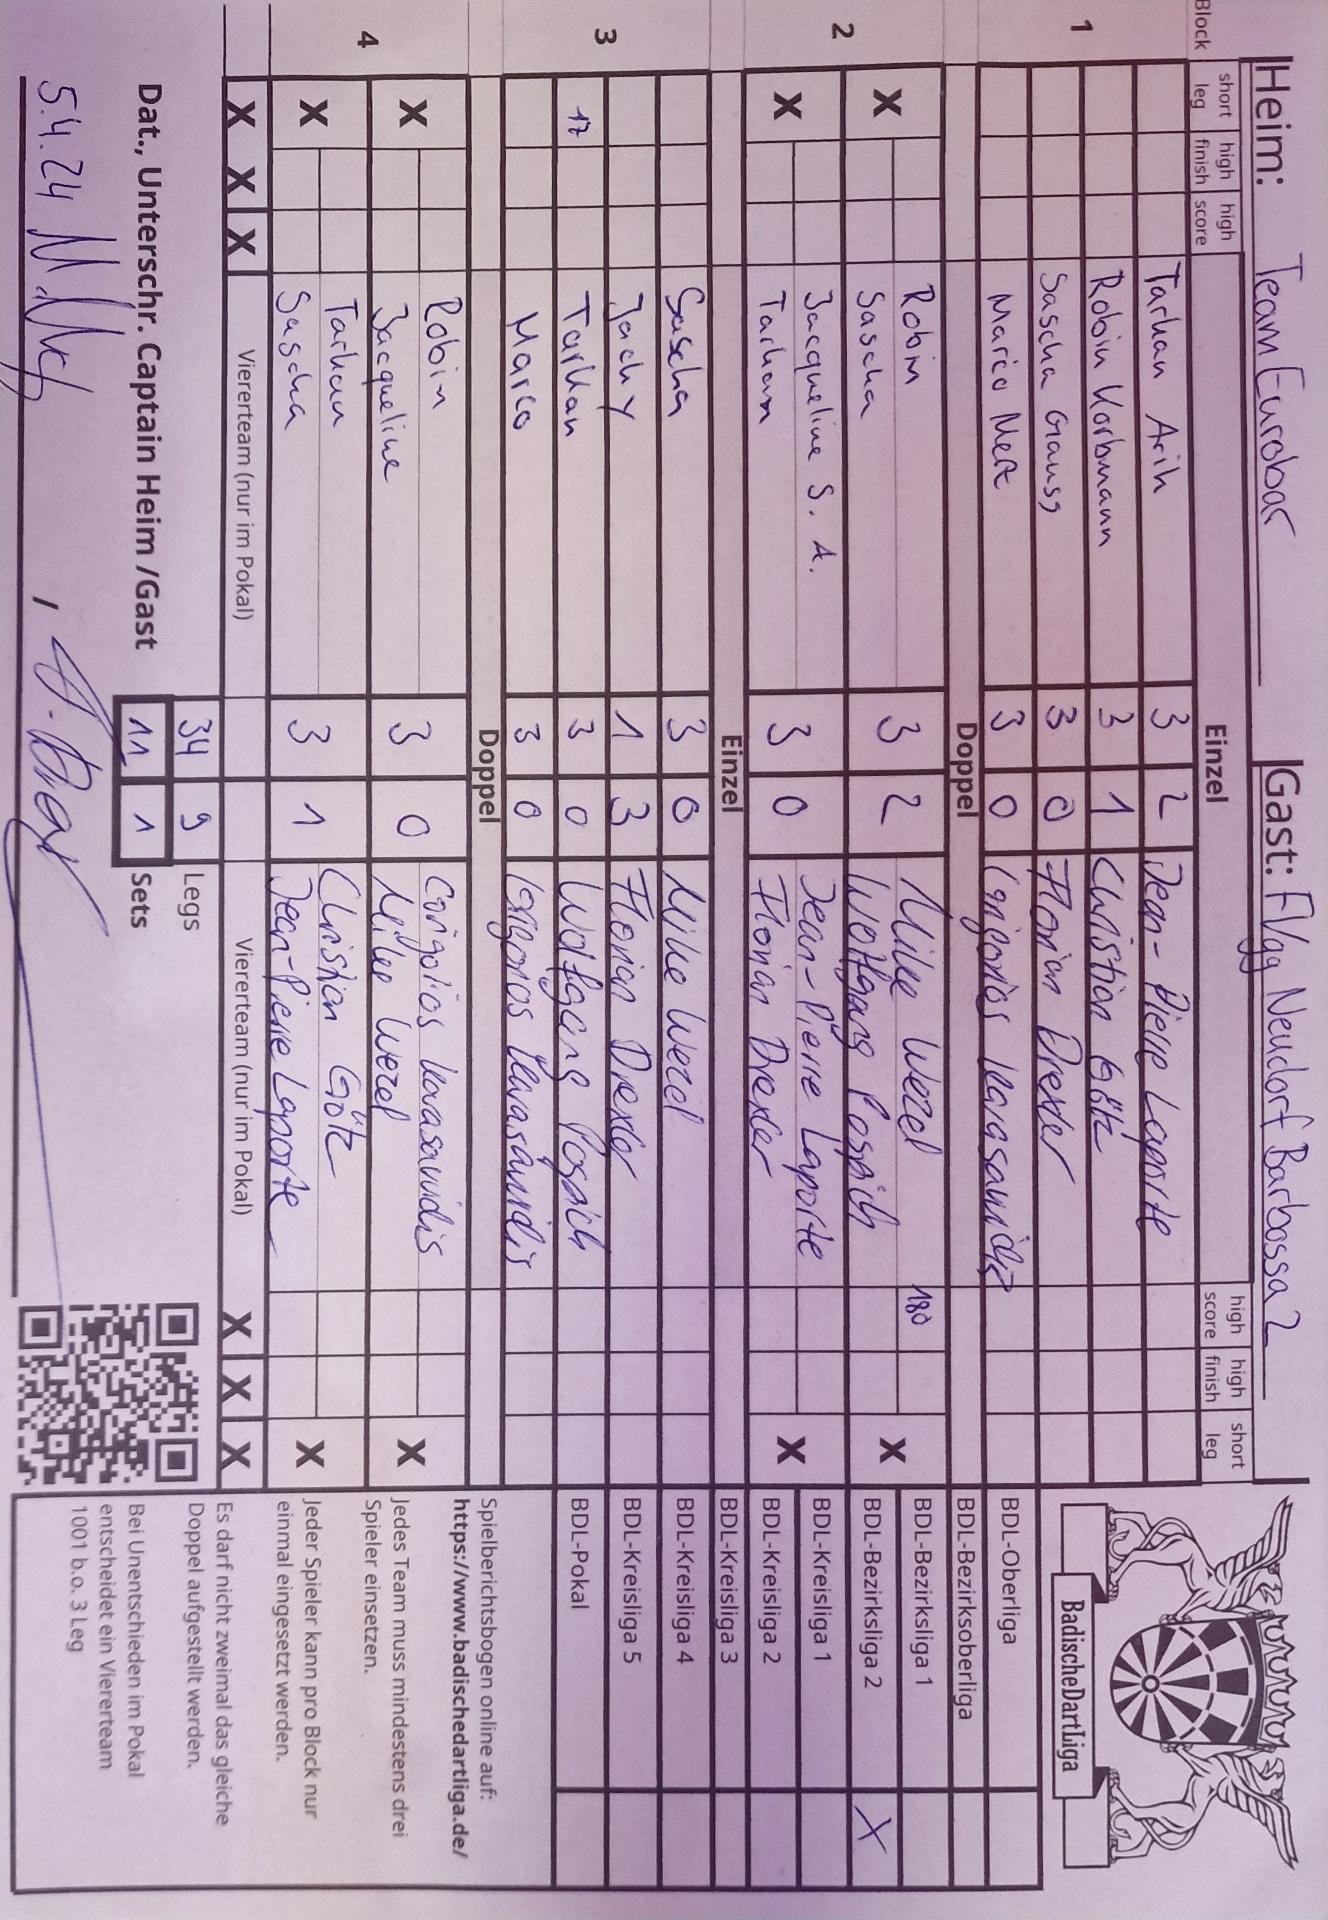 Heim: Team Eurobar Gast: FVgg Neudorf Barbossa 2
Block short leg high finish high score Einzel high score high finish short leg
1
Tarkan Arik 3 2 Jean-Pierre Laporte
Robin Korbmann 3 1 Christian Götz
Sascha Grauss 3 0 Florian Drexler
Marco Mert 3 0 Grigorios Karasavidis
Doppel
2
X Robin 3 2 Mike Wezel 180 X
Sascha Wolfgang Pospich
X Jacqueline S. A. 3 0 Jean-Pierre Laporte X
Tarkan Florian Drexler
Einzel
3
Sascha 3 0 Mike Wezel
Jacky 1 3 Florian Drexler
17 Tarkan 3 0 Wolfgang Pospich
Marco 3 0 Grigorios Karasavidis
Doppel
4
X Robin 3 0 Grigorios Karasavidis X
Jacqueline Mike Wezel
X Tarkan 3 1 Christian Götz X
Sascha Jean-Pierre Laporte
X X X Viererteam (nur im Pokal) Viererteam (nur im Pokal) X X X
34 9 Legs
Dat., Unterschr. Captain Heim /Gast 11 1 Sets
5.4.24
BadischeDartLiga
BDL-Oberliga
BDL-Bezirksoberliga
BDL-Bezirksliga 1
BDL-Bezirksliga 2 X
BDL-Kreisliga 1
BDL-Kreisliga 2
BDL-Kreisliga 3
BDL-Kreisliga 4
BDL-Kreisliga 5
BDL-Pokal
Spielberichtsbogen online auf:
https://www.badischedartliga.de/
Jedes Team muss mindestens drei
Spieler einsetzen.
Jeder Spieler kann pro Block nur
einmal eingesetzt werden.
Es darf nicht zweimal das gleiche
Doppel aufgestellt werden.
Bei Unentschieden im Pokal
entscheidet ein Viererteam
1001 b.o. 3 Leg